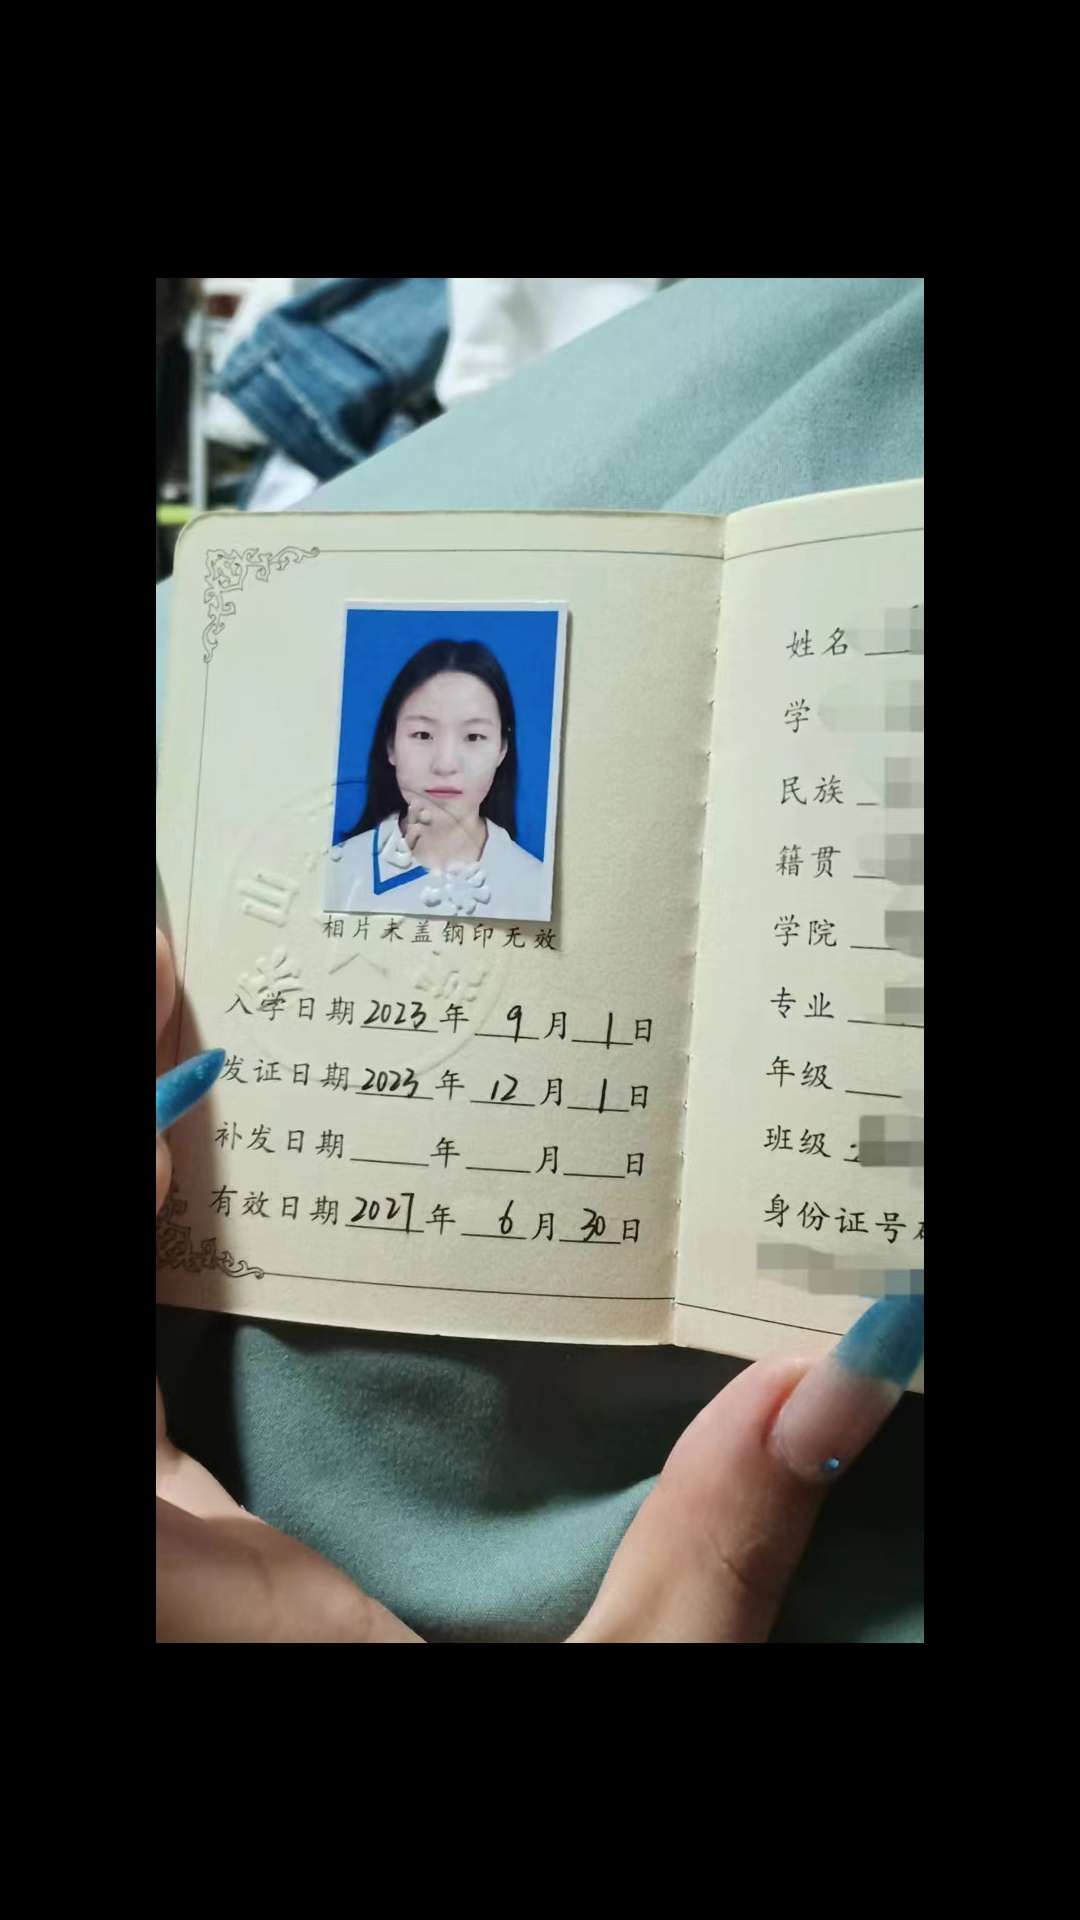 相片未盖钢印无效
入学日期 2023 年 9 月 1 日
发证日期 2023 年 12 月 1 日
补发日期 年 月 日
有效日期 2027 年 6 月 30 日
姓名
学
民族
籍贯
学院
专业
年级
班级
身份证号